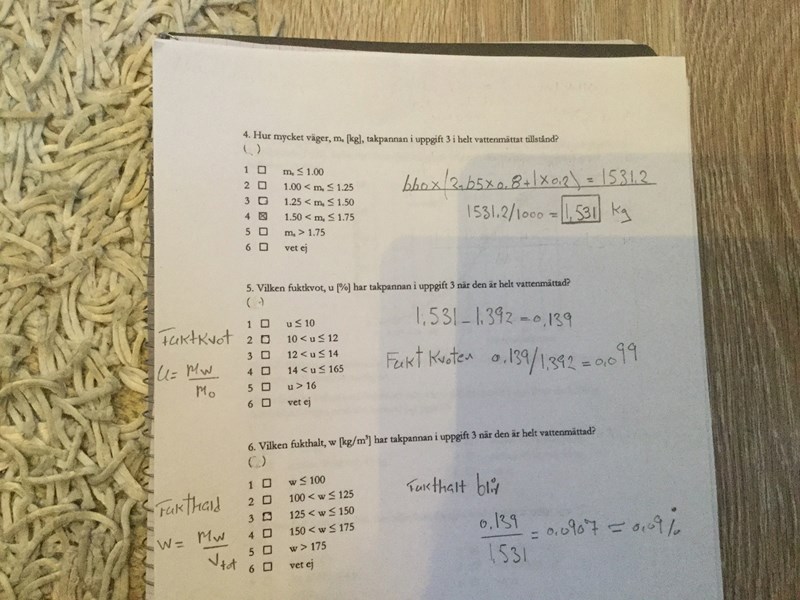 4. Hur mycket väger, m, [kg], takpannan i uppgift 3 i helt vattenmättat tillstånd?
( )
1 m, ≤ 1.00
2 1.00 < m, ≤ 1.25
3 1.25 < m, ≤ 1.50
4 1.50 < m, ≤ 1.75
5 m, > 1.75
6 vet ej
660x(2.65x0.8+1x0.2) = 1531.2
1531.2/1000 = 1,531 kg
5. Vilken fuktkvot, u [%] har takpannan i uppgift 3 när den är helt vattenmättad?
( )
1 u ≤ 10
2 10 < u ≤ 12
3 12 < u ≤ 14
4 14 < u ≤ 165
5 u > 16
6 vet ej
1.531 - 1.392 = 0,139
Fukt kvoten 0.139/1,392 = 0,099
Fuktkvot
u = mw
m0
6. Vilken fukthalt, w [kg/m³] har takpannan i uppgift 3 när den är helt vattenmättad?
( )
1 w ≤ 100
2 100 < w ≤ 125
3 125 < w ≤ 150
4 150 < w ≤ 175
5 w > 175
6 vet ej
Fukthalt blir
0,139
1,531
= 0.0907 = 0.09%
Fukthald
w = mw
Vtot